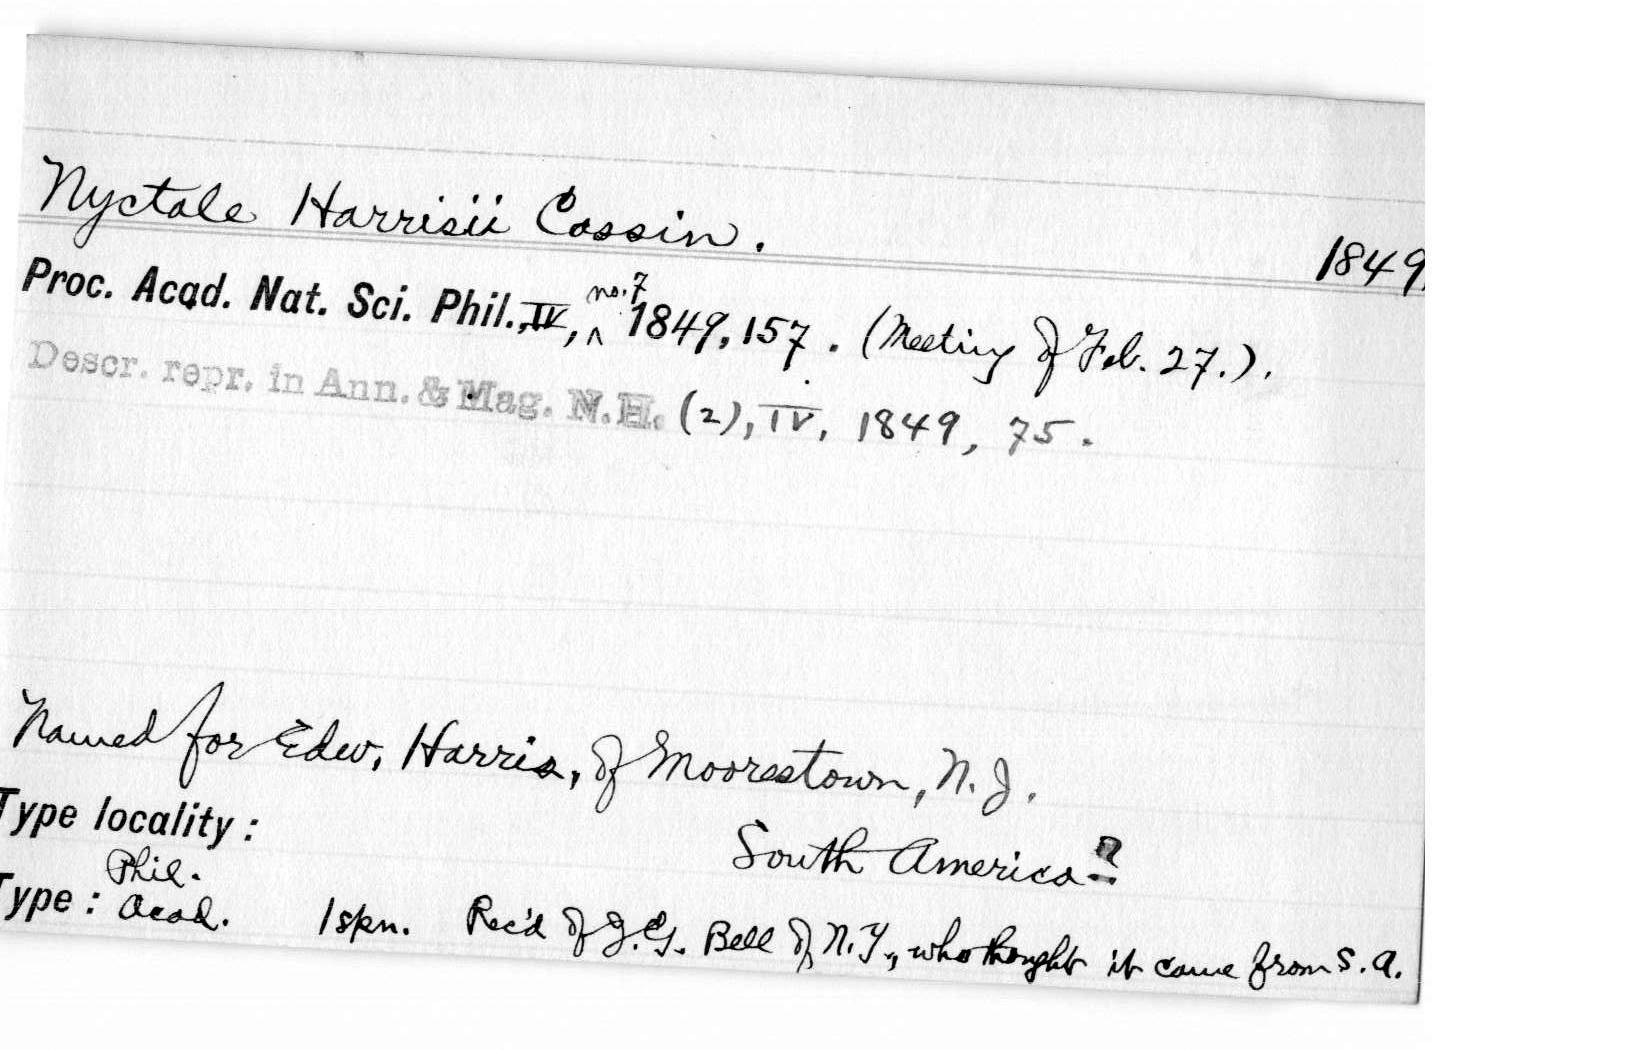 Nyctale Harrisii Cassin.
1849
Proc. Acad. Nat. Sci. Phil., IV, no. 7 ^ 1849, 157. (Meeting of Feb. 27.).
Descr. repr. in Ann. & Mag. N.H. (2), IV, 1849, 75.
Named for Edw. Harris, of Moorestown, N.J.
Type locality:
South America?
Phil.
Type: Acad. 1 spn. Rec'd of J.G. Bell of N.Y., who thought it came from S.A.